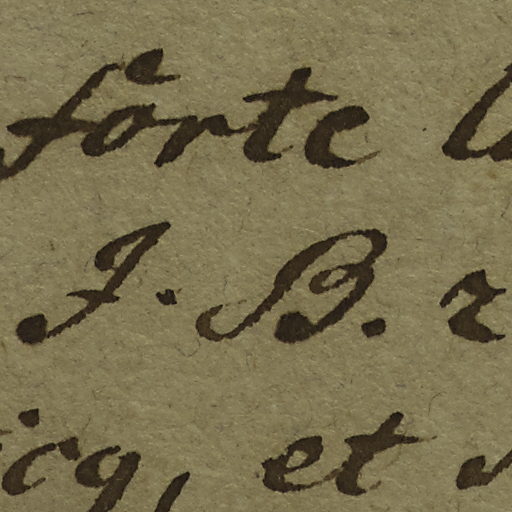 forte
J. B. 2
icq, et